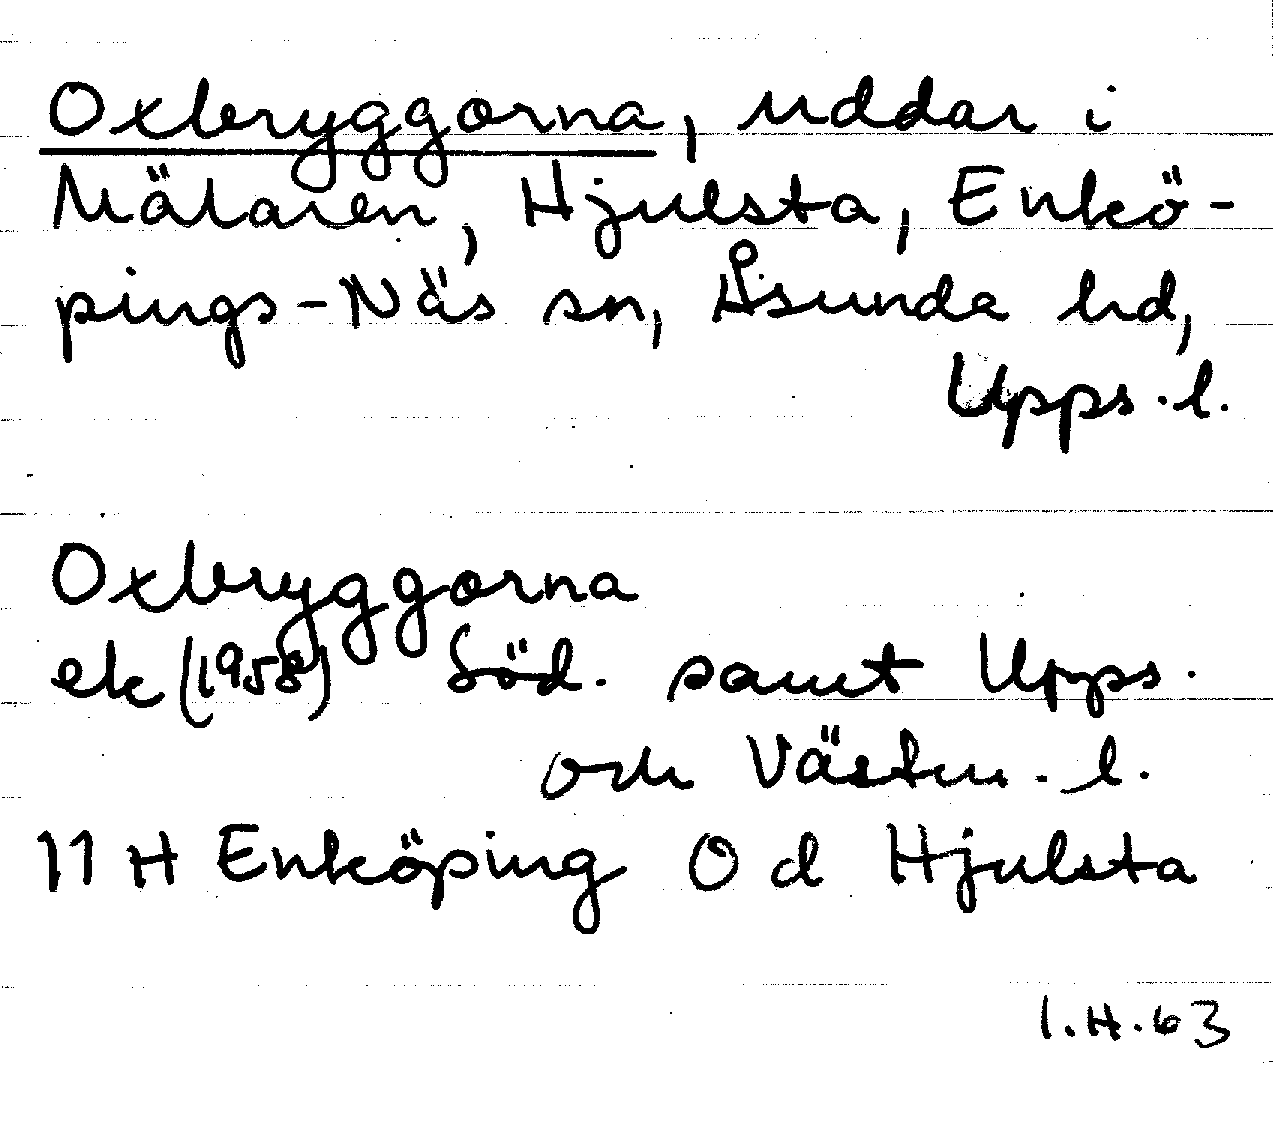 Oxbryggorna, uddar i
Mälaren, Hjulsta, Enkö-
pings-Näs sn, Åsunda hd,
Upps. l.
Oxbryggorna
ek (1958) Söd. samt Upps.
och Västm. l.
11 H Enköping O d Hjulsta
I.H. 63